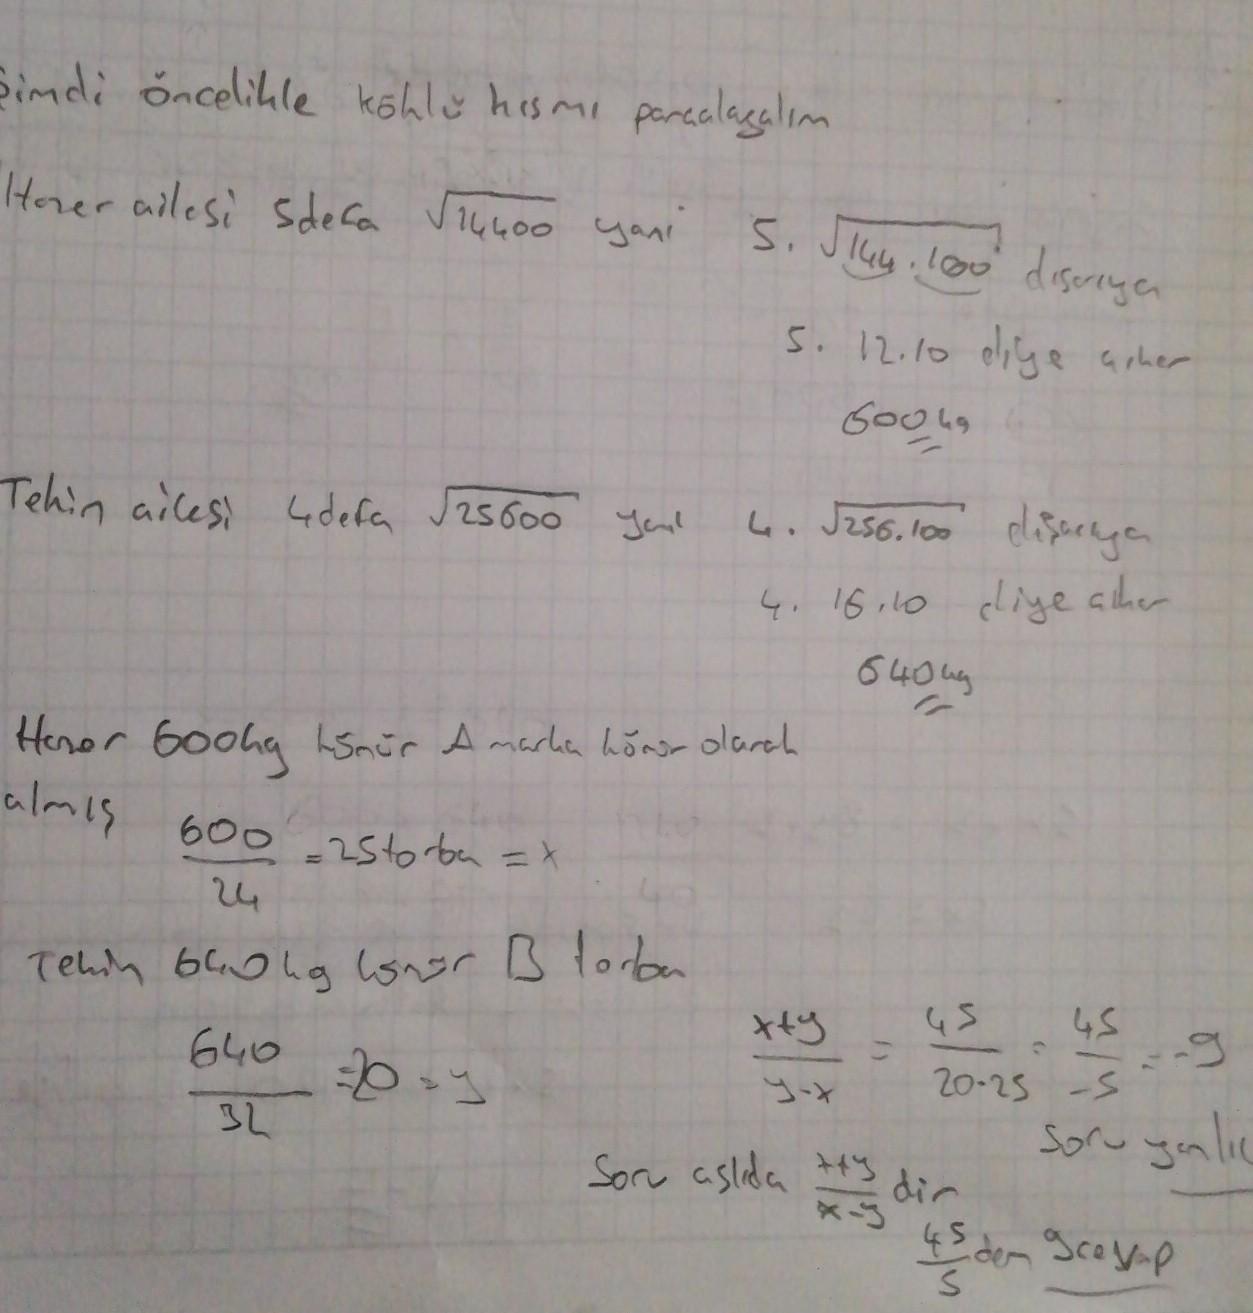 Şimdi öncelikle köklü kısmı parçalayalım
Hazer ailesi 5defa √14400 yani 5. √144.100 dışarıya
5. 12.10 diye çıkar
600kg
Tekin ailesi 4defa √25600 yani 4. √256.100 dışarıya
4. 16.10 diye çıkar
640kg
Hazer 600kg kömür A marka kömür olarak
almış
600/24 = 25torba = x
Tekin 640kg kömür B torba
640/32 = 20 = y
x+y/y-x = 45/20-25 = 45/-5 = -9
Soru yanlış
Soru aslıda x+y/x-y dir
45/5 den 9cevap